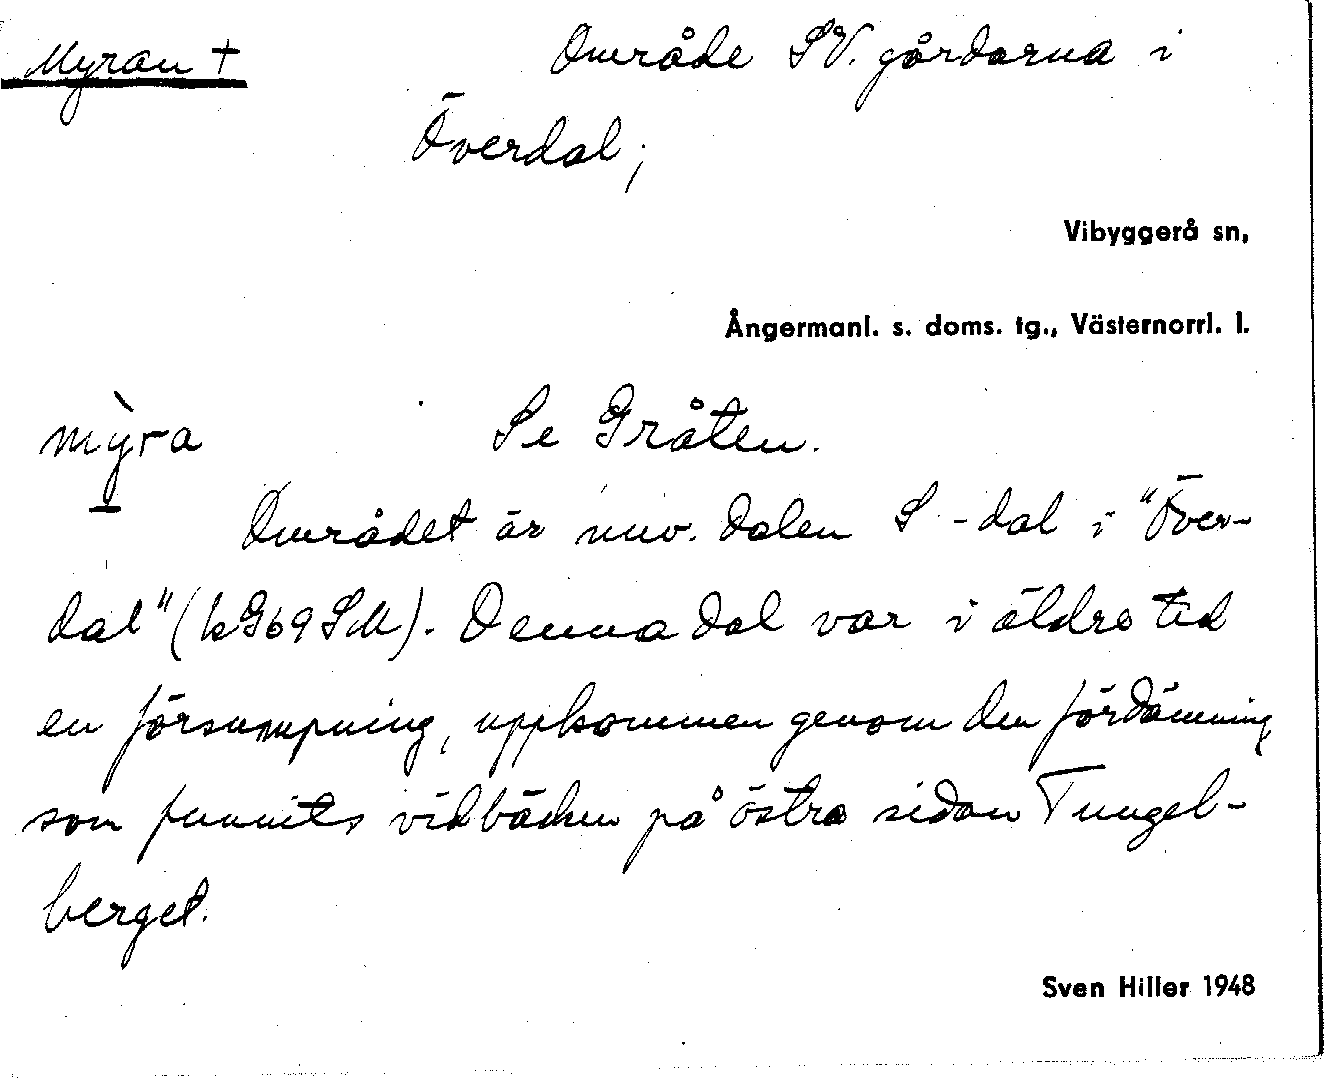 Myran +
Område SV. gårdarna i
Överdal;
Vibyggerå sn,
Ångermanl. s. doms. tg., Västernorrl. l.
mỳra
Se Gråten.
Området är nuv. dalen S -dal i "Över-
dal" (kG69SM). Denna dal var i äldre tid
en försumpning, uppkommen genom den fördämning
som funnits vid bäcken på östra sidan Tungel-
berget.
Sven Hiller 1948